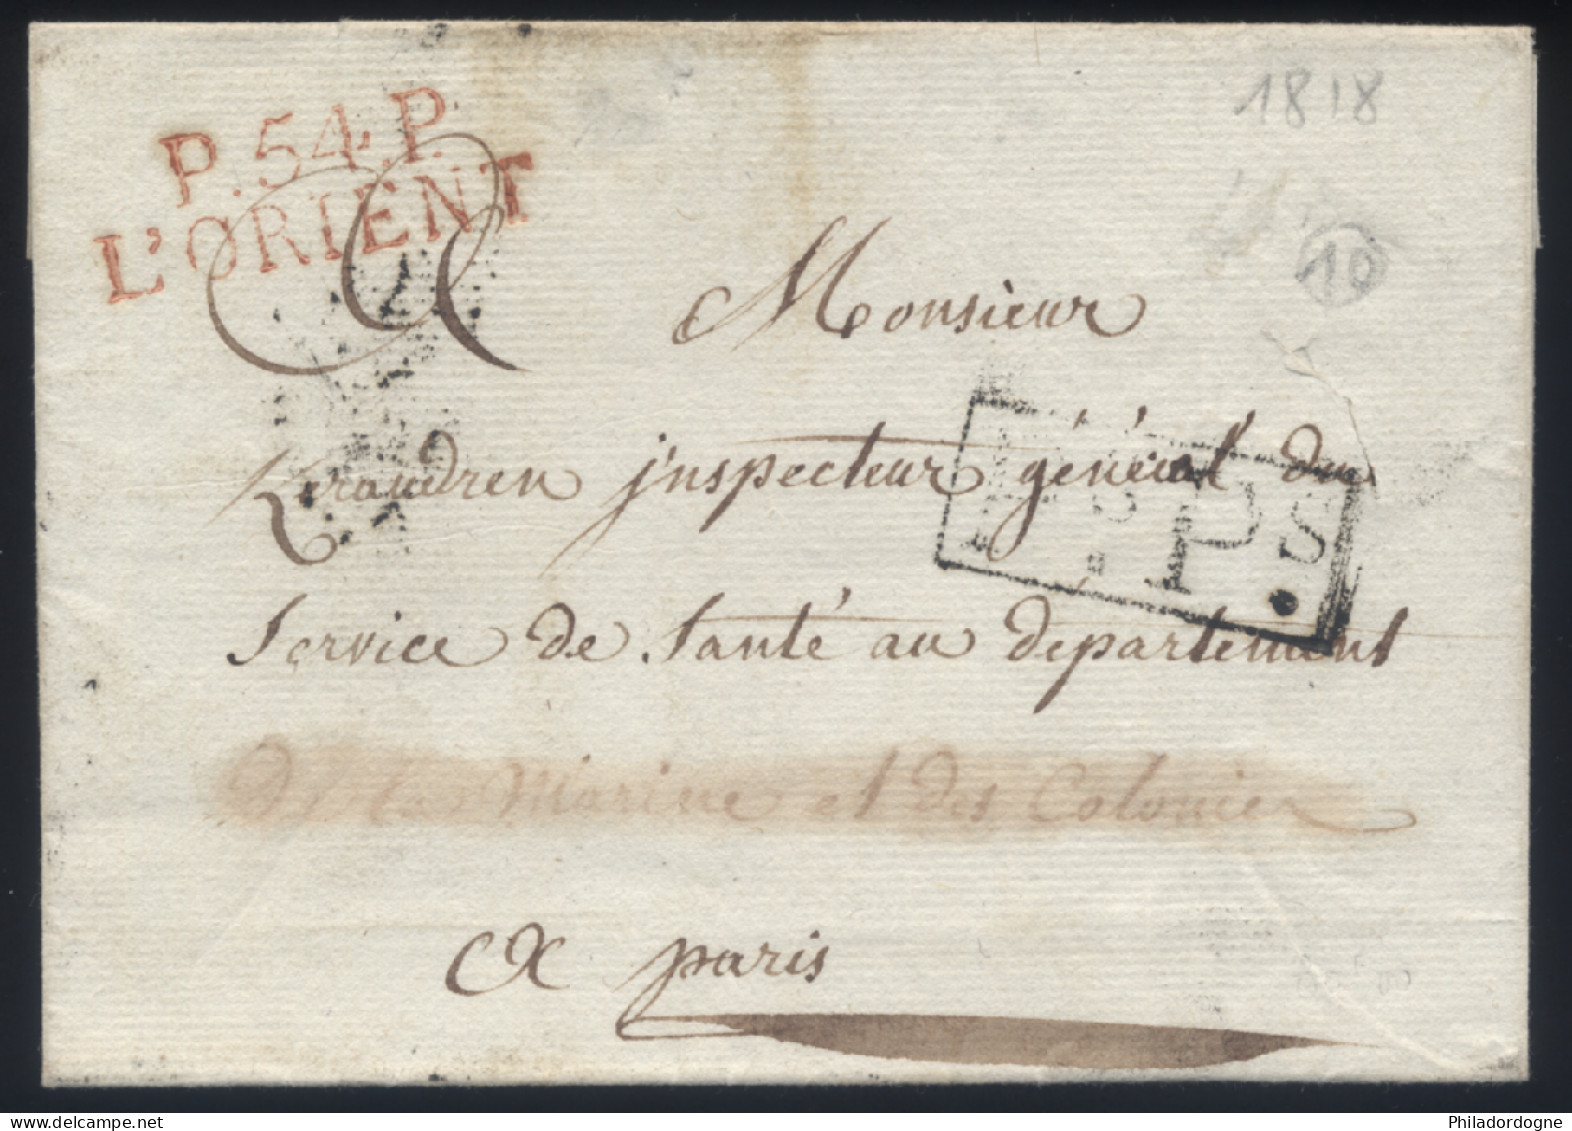 1818
P.54.P.
L'ORIENT
10
Monsieur
Keraudren jnspecteur général du
P.Ps.
Service de Santé au département
de la Marine et des Colonies
A paris
Philadordogne